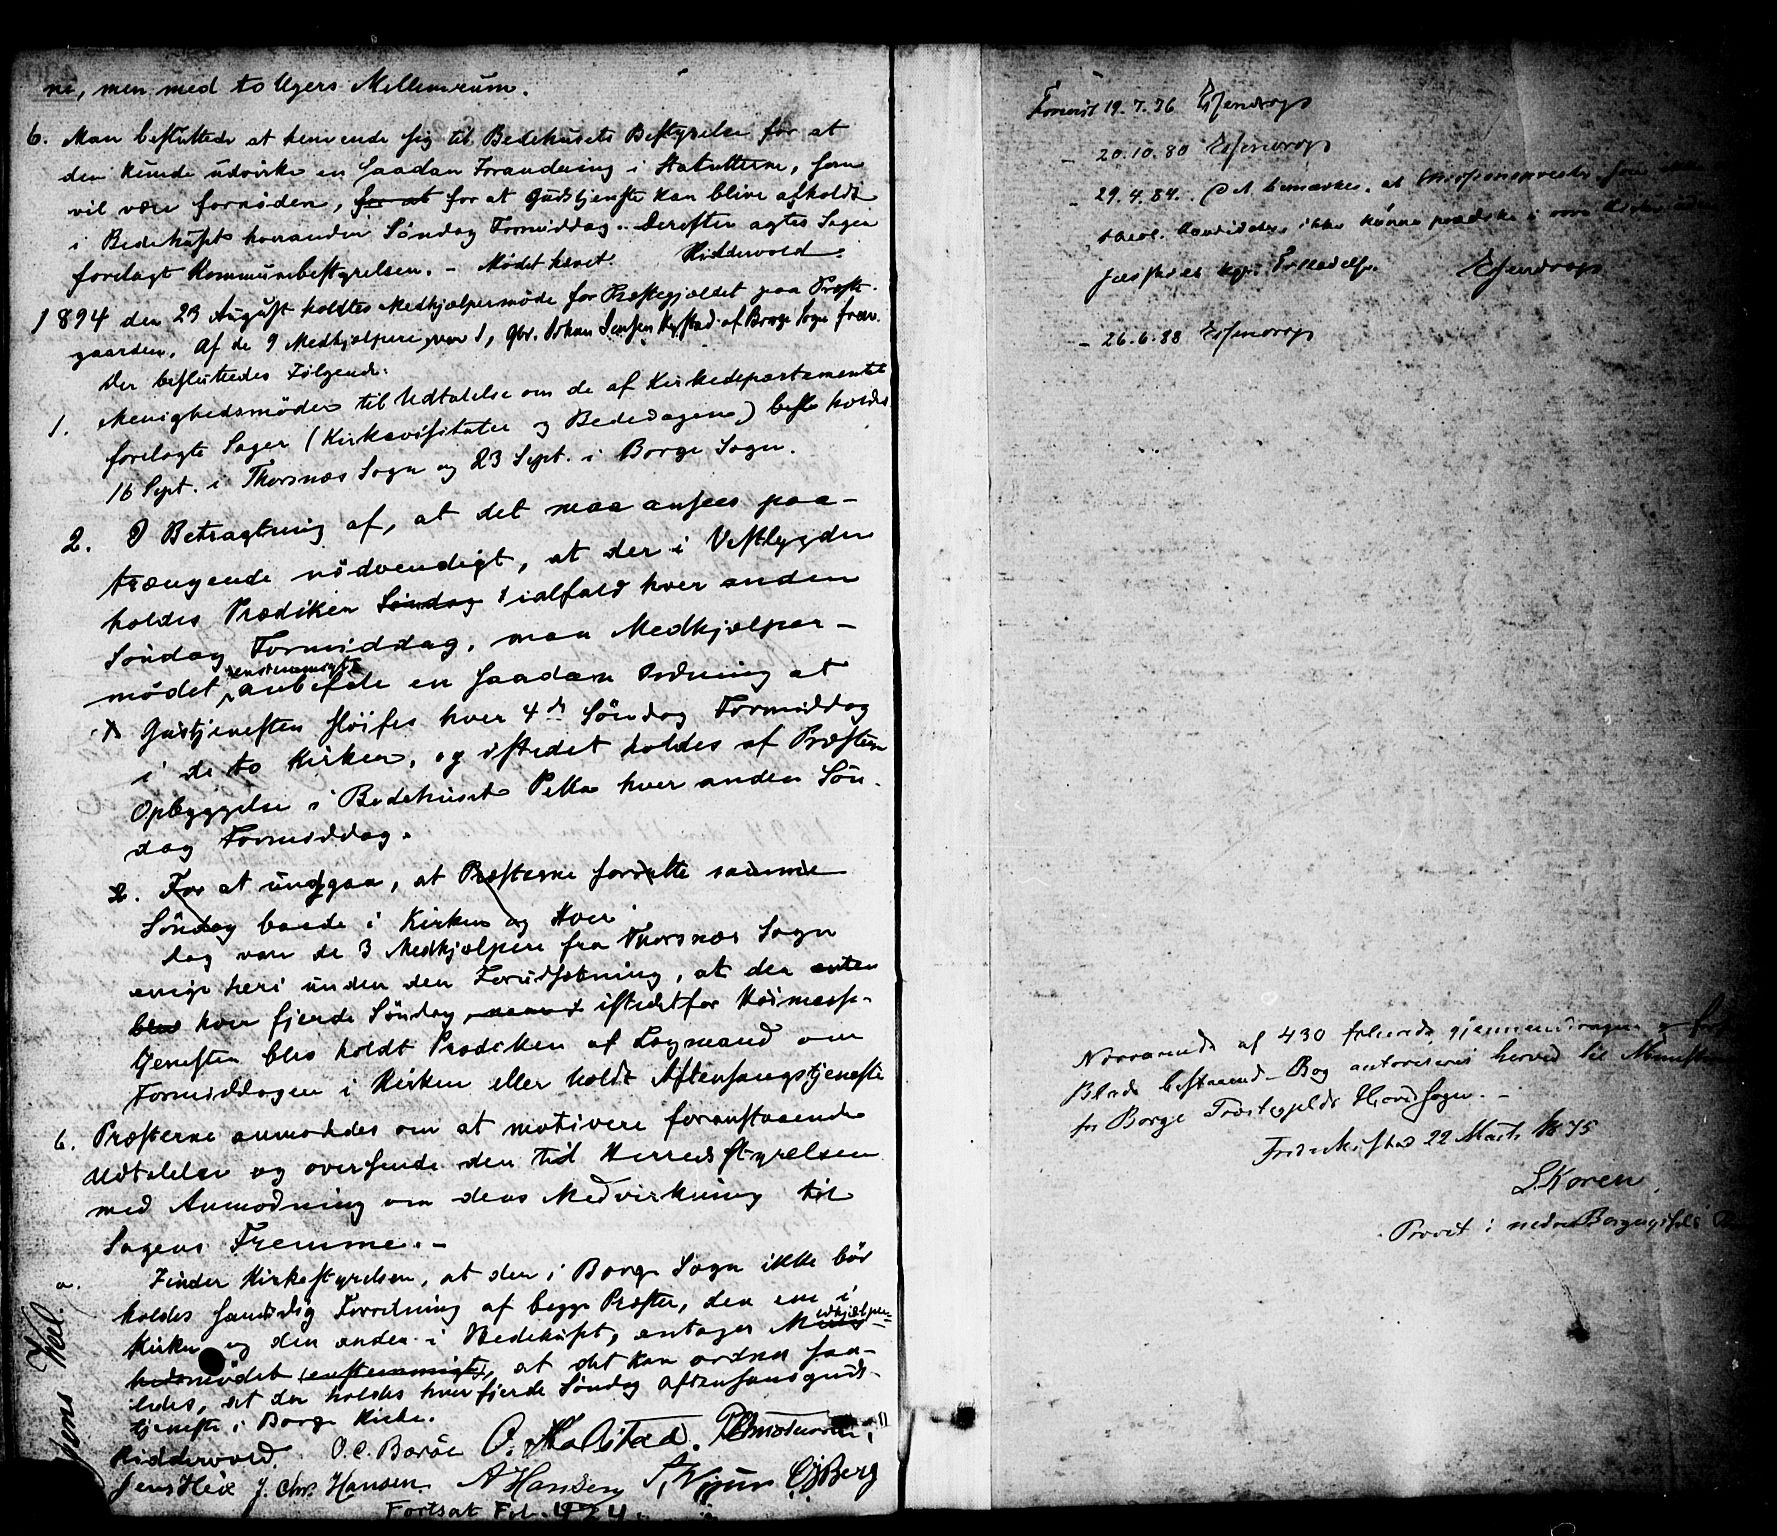 ne, men med to Ugers Mellemrum.
6. Man besluttede at henvende sig til Bedehusets Bestyrelse for at
den kunde udvirke en saadan Forandring i Statutterne, som
vil være fornöden, for at for at Gudstjeneste kan blive afholdt
i Bedehuset hveranden Söndag Formiddag. Derefter agtes Sagen
forelagt Kommunebestyrelsen. – Mödet hævet. Riddervold.
1894 den 23 August holdtes Medhjælpermöde for Præstegjældet paa Præste-
gaarden. Af de 9 Medhjælpere var 1, Gbr. Johan Jensen af Borge Sogn frav.
Der besluttedes Fölgende:
1. Menighedsmöder til Udtalelse om de af Kirkedepartementet
forelagte Sager (Kirkevisitatser og Bededagene) besl. holdt
16 Sept. i Thorsnæs Sogn og 23 Sept. i Borge Sogn.
2. I Betragtning af, at det maa ansees paa-
trængende nödvendigt, at der i Vestbygden
holdes Prædiken Söndag ialfald hver anden
Söndag Formiddag, maa Medhjælper-
mödet enstemmigt anbefale en saadan Ordning at
Gudstjenesten slöifes hver 4de Söndag Formiddag
i de to Kirker, og istedet holdes af Præsterne
Opbyggelse i Bedehuset Pella hver anden Sön-
dag Formiddag.
2. For at undgaa, at Præsterne forrette samme
Söndag baade i Kirken og Hver
dag vare de 3 Medhjælpere fra Thorsnæs Sogn
enige heri under den Forudsætning, at der enten
blev hver fjerde Söndag istedetfor Höimesse-
tjenesten blev holdt Prædiken af Lægmand om
Formiddagen i Kirken eller holdt Aftensangstjeneste
6. Præsterne anmodedes om at motivere foranstaaende
Udtalelse og oversende den til Herredsstyrelsen
med Anmodning om dens Medvirkning til
Sagens Fremme. –
a. Finder Kirkestyrelsen, at der i Borge Sogn ikke bör
holdes samtidig Forretning af begge Præster, den ene i
Kirken og den anden i Bedehuset, antager Medhjælper-
hedsmödet (enstemmigt), at det kan ordnes saa-
ledes, at der holdes hver fjerde Söndag Aftensangsguds-
tjeneste i Borge Kirke.
Riddervold. O. C. Baröe O. Halstad.
Jens Hvil J. Chr. Hansen A Hansen Berg
Fortsat Fol. 424.
Jens Hvil.
Foreviist 19.7.76 Essendrop
– 20.10.80 Essendrop
– 29.4.84. Det bemærkes, at
theol. Candidater ikke kunne prædike i vore Kirker uden
Essendrop
– 26.6.88 Essendrop
Nærværende af 430 folierede gjennemdragne og
Blade bestaaende Bog autoriseres herved til
for Borge Præstegjelds Hovedsogn. –
Frederikstad 22 Marts 1875
L. Koren,
Provst i nedre Borgesyssels